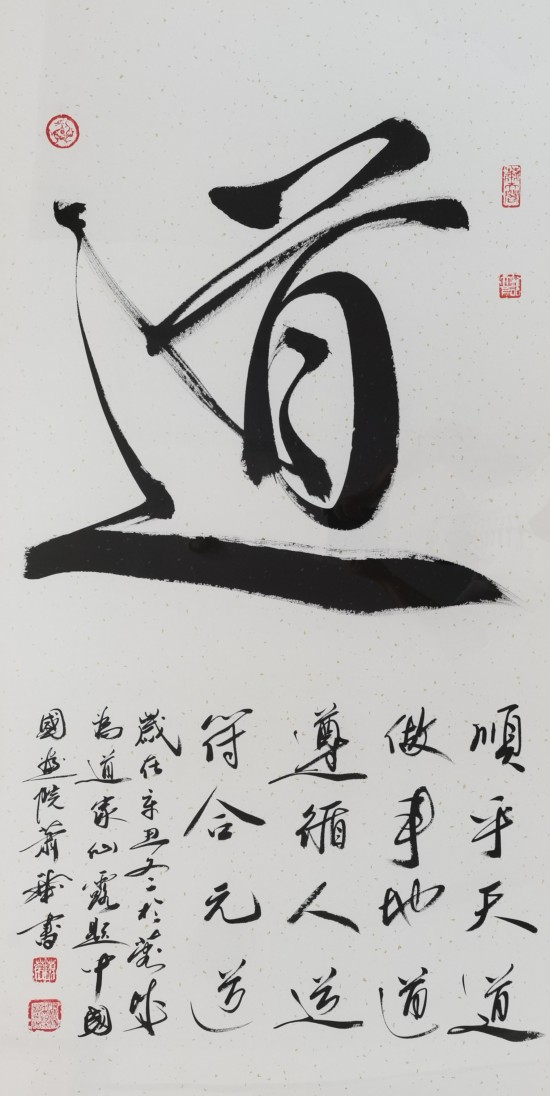 道
順乎天道
做事地道
遵循人道
符合元道
歲在辛丑冬二於蓉城
為道家仙霞題中國
國画院蕭 書